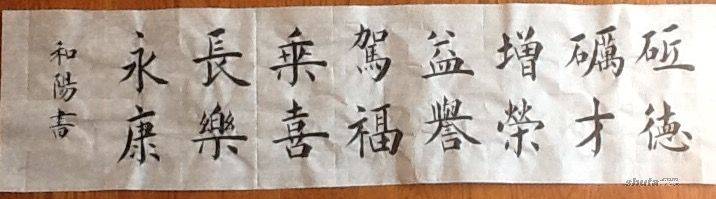 砥德
礪才
增榮
益譽
駕福
乗喜
長樂
永康
和陽書